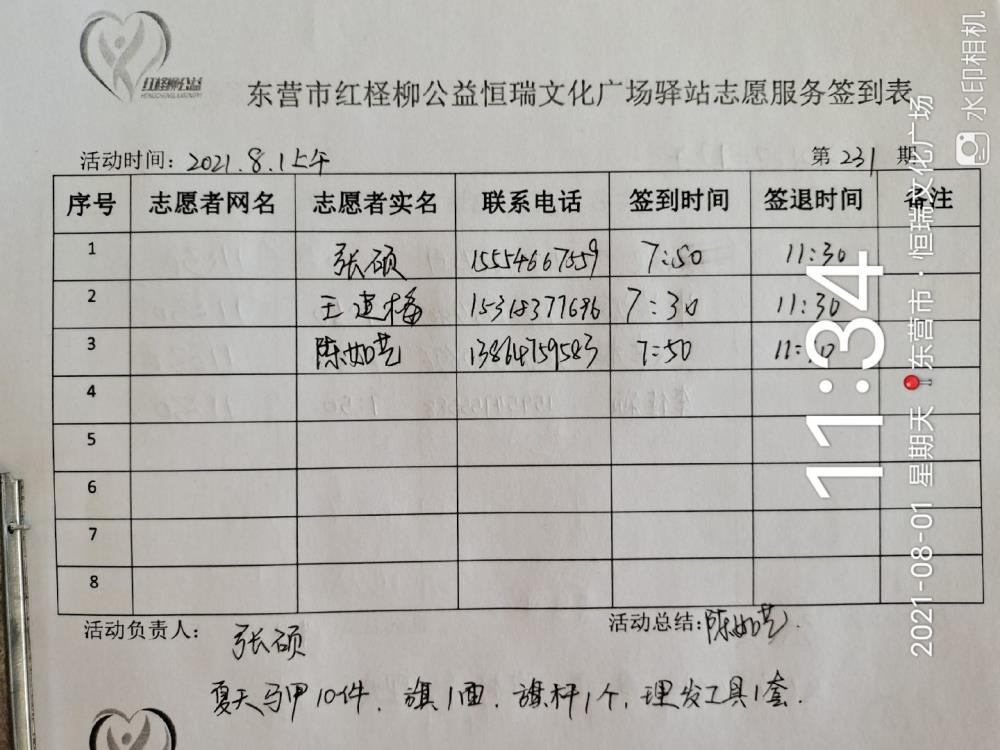 红柽柳公益
东营市红柽柳公益恒瑞文化广场驿站志愿服务签到表
活动时间：2021.8.1上午 第 231 期
序号 志愿者网名 志愿者实名 联系电话 签到时间 签退时间 备注
1 张硕 15554667559 7:50 11:30
2 王建梅 15318377696 7:30 11:30
3 陈如芸 13864759583 7:50
4
5
6
7
8
活动负责人： 张硕 活动总结：陈如芸.
夏天马甲10件、旗1面、旗杆1个，理发工具1套.
11:34
2021-08-01 星期天 东营市·恒瑞文化广场
水印相机